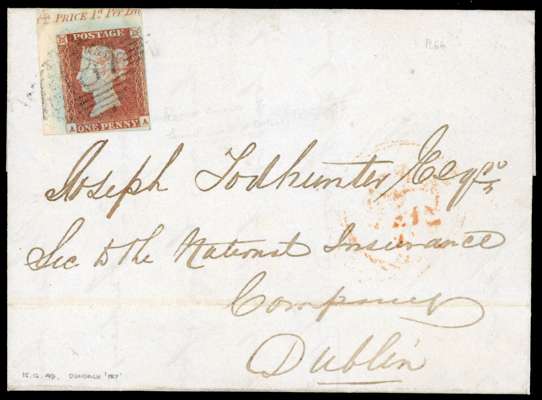 PRICE 1d. Per La
POSTAGE
A ONE PENNY A
Joseph Todhunter Esqr
Sec to the National Insurance
Company
Dublin